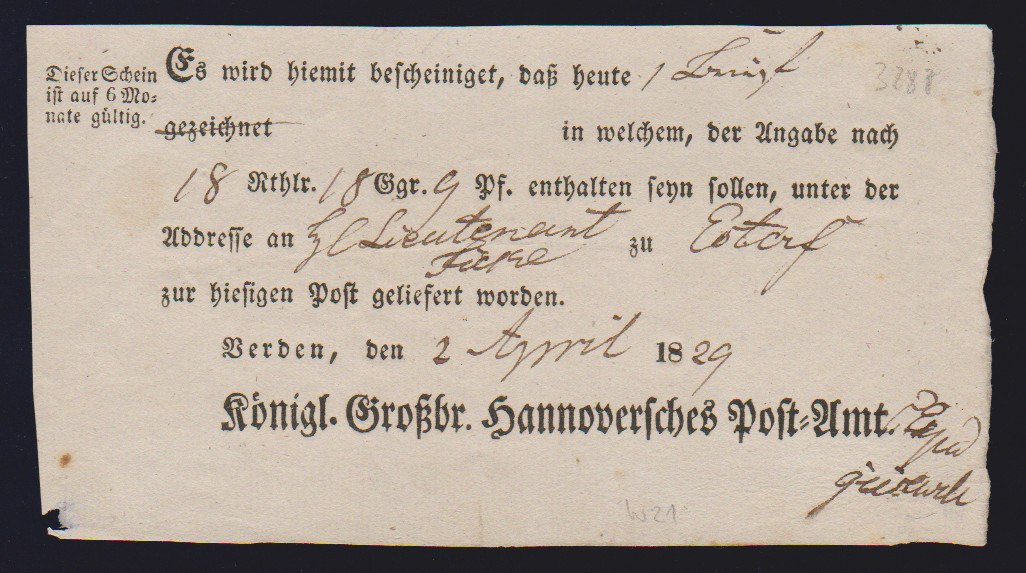 Dieser Schein
ist auf 6 Mo-
nate gültig.
Es wird hiemit bescheiniget, daß heute 1 Brief
gezeichnet in welchem, der Angabe nach
18 Rthlr. 18 Ggr. 9 Pf. enthalten seyn sollen, unter der
Addresse an Lieutenant zu Estorf
Ficke
zur hiesigen Post geliefert worden.
Verden, den 2 April 1829
Königl. Großbr. Hannoversches Post-Amt.
W21